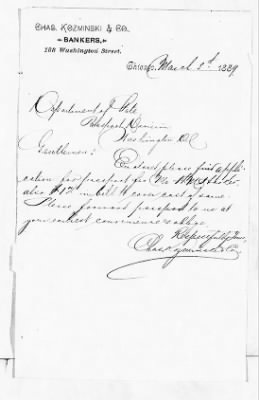 CHAS. KOZMINSKI & CO.
BANKERS,
168 Washington Street.
Chicago, March 1889
Department of State
Passport Division
Washington D.C.
Gentlemen:
Enclosed please find appli-
cation for passport for Mr.
also $1 in bill to cover cost of same.
Please forward passport to us at
your earliest convenience & oblige
Respectfully Yours,
Chas Kozminski & Co.